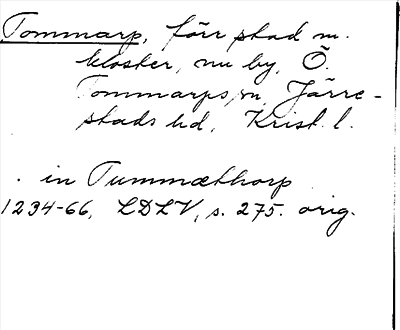 Tommarp, förr stad m.
kloster, nu by, Ö.
Tommarps sn, Järre-
stads hd, Krist. l.
in Tummæthorp
1234-66, LDLV, s. 275. orig.